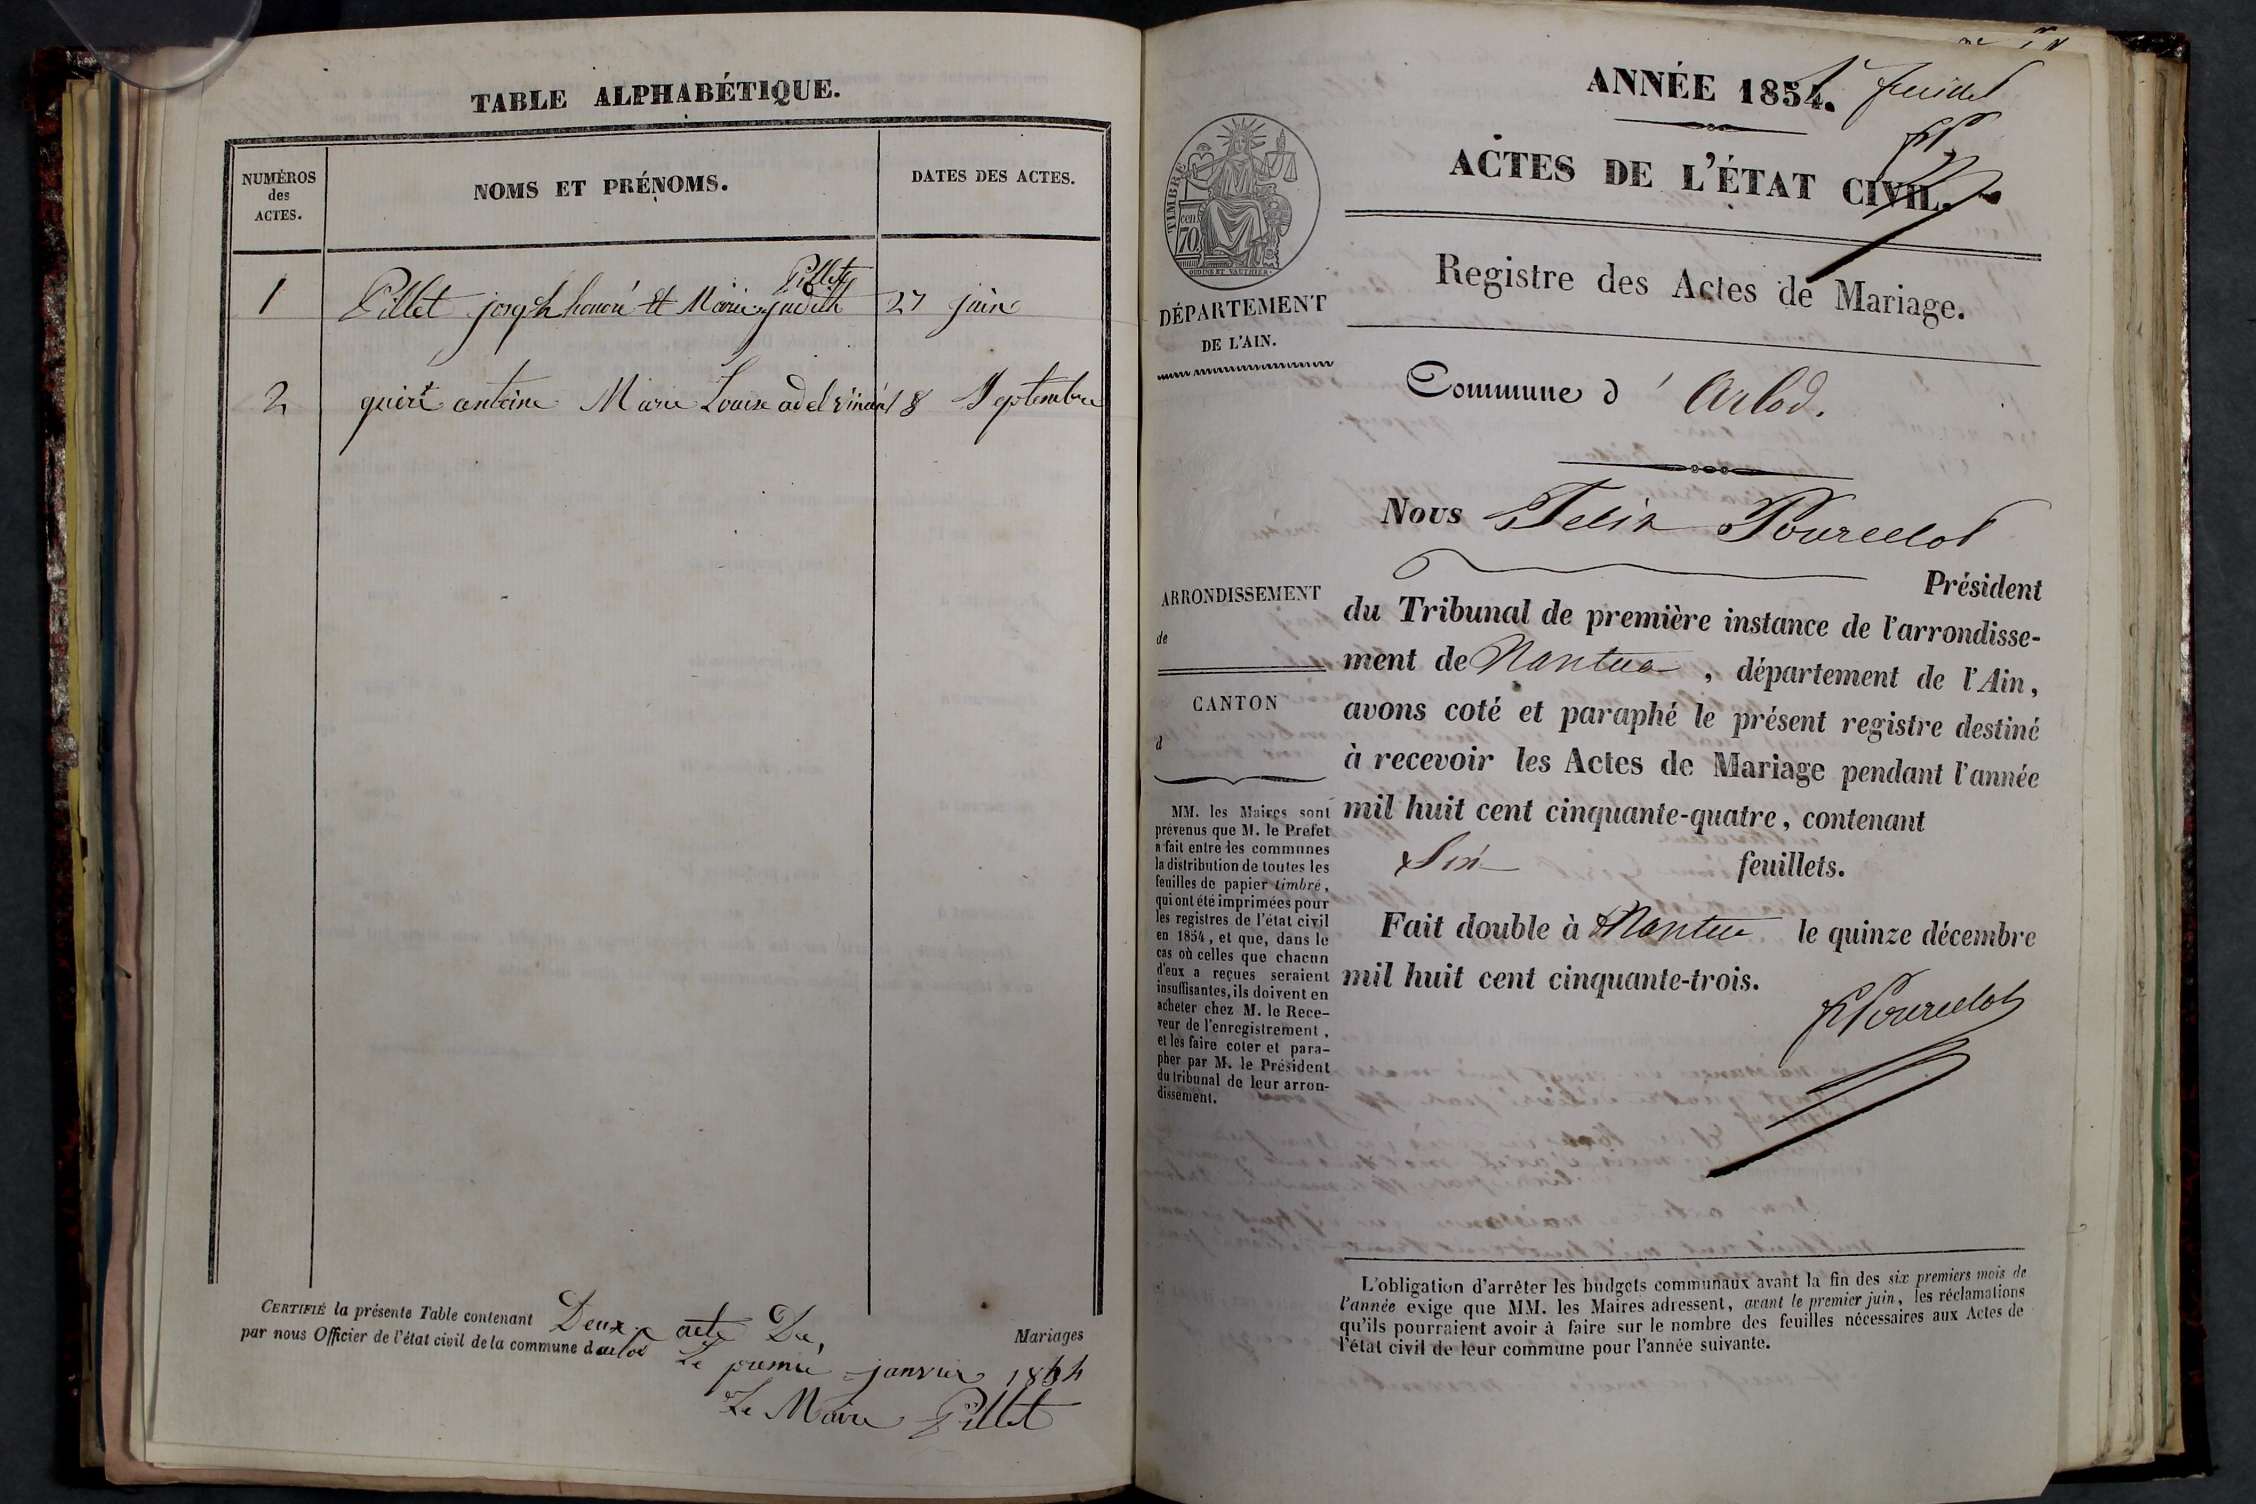 TABLE ALPHABÉTIQUE.
NUMÉROS
des
ACTES.
NOMS ET PRÉNOMS.
DATES DES ACTES.
Pillet
1 Pillet joseph honoré et Marie judith 27 juin
2 antoine Marie Louise 18 Septembre
CERTIFIÉ la présente Table contenant Deux acte De Mariages
par nous Officier de l'état civil de la commune d arlod
Le premier janvier 1854
Le Maire Pillet
ANNÉE 1854.
1er feuillet
ACTES DE L'ÉTAT CIVIL.
TIMBRE
cen.
70
OUDINE ET VAUTHIER
Registre des Actes de Mariage.
DÉPARTEMENT
DE L'AIN.
Commune d' Arlod.
Nous Felix Pourcelot
Président
ARRONDISSEMENT
de
CANTON
d
du Tribunal de première instance de l'arrondisse-
ment de Nantua, département de l'Ain,
avons coté et paraphé le présent registre destiné
à recevoir les Actes de Mariage pendant l'année
mil huit cent cinquante-quatre, contenant
Six feuillets.
Fait double à Nantua le quinze décembre
mil huit cent cinquante-trois.
FPourcelot
MM. les Maires sont
prévenus que M. le Prefet
a fait entre les communes
la distribution de toutes les
feuilles de papier timbré,
qui ont été imprimées pour
les registres de l'état civil
en 1854, et que, dans le
cas où celles que chacun
d'eux a reçues seraient
insuffisantes, ils doivent en
acheter chez M. le Rece-
veur de l'enregistrement,
et les faire coter et para-
pher par M. le Président
du tribunal de leur arron-
dissement.
L'obligation d'arrêter les budgets communaux avant la fin des six premiers mois de
l'année exige que MM. les Maires adressent, avant le premier juin, les réclamations
qu'ils pourraient avoir à faire sur le nombre des feuilles nécessaires aux Actes de
l'état civil de leur commune pour l'année suivante.